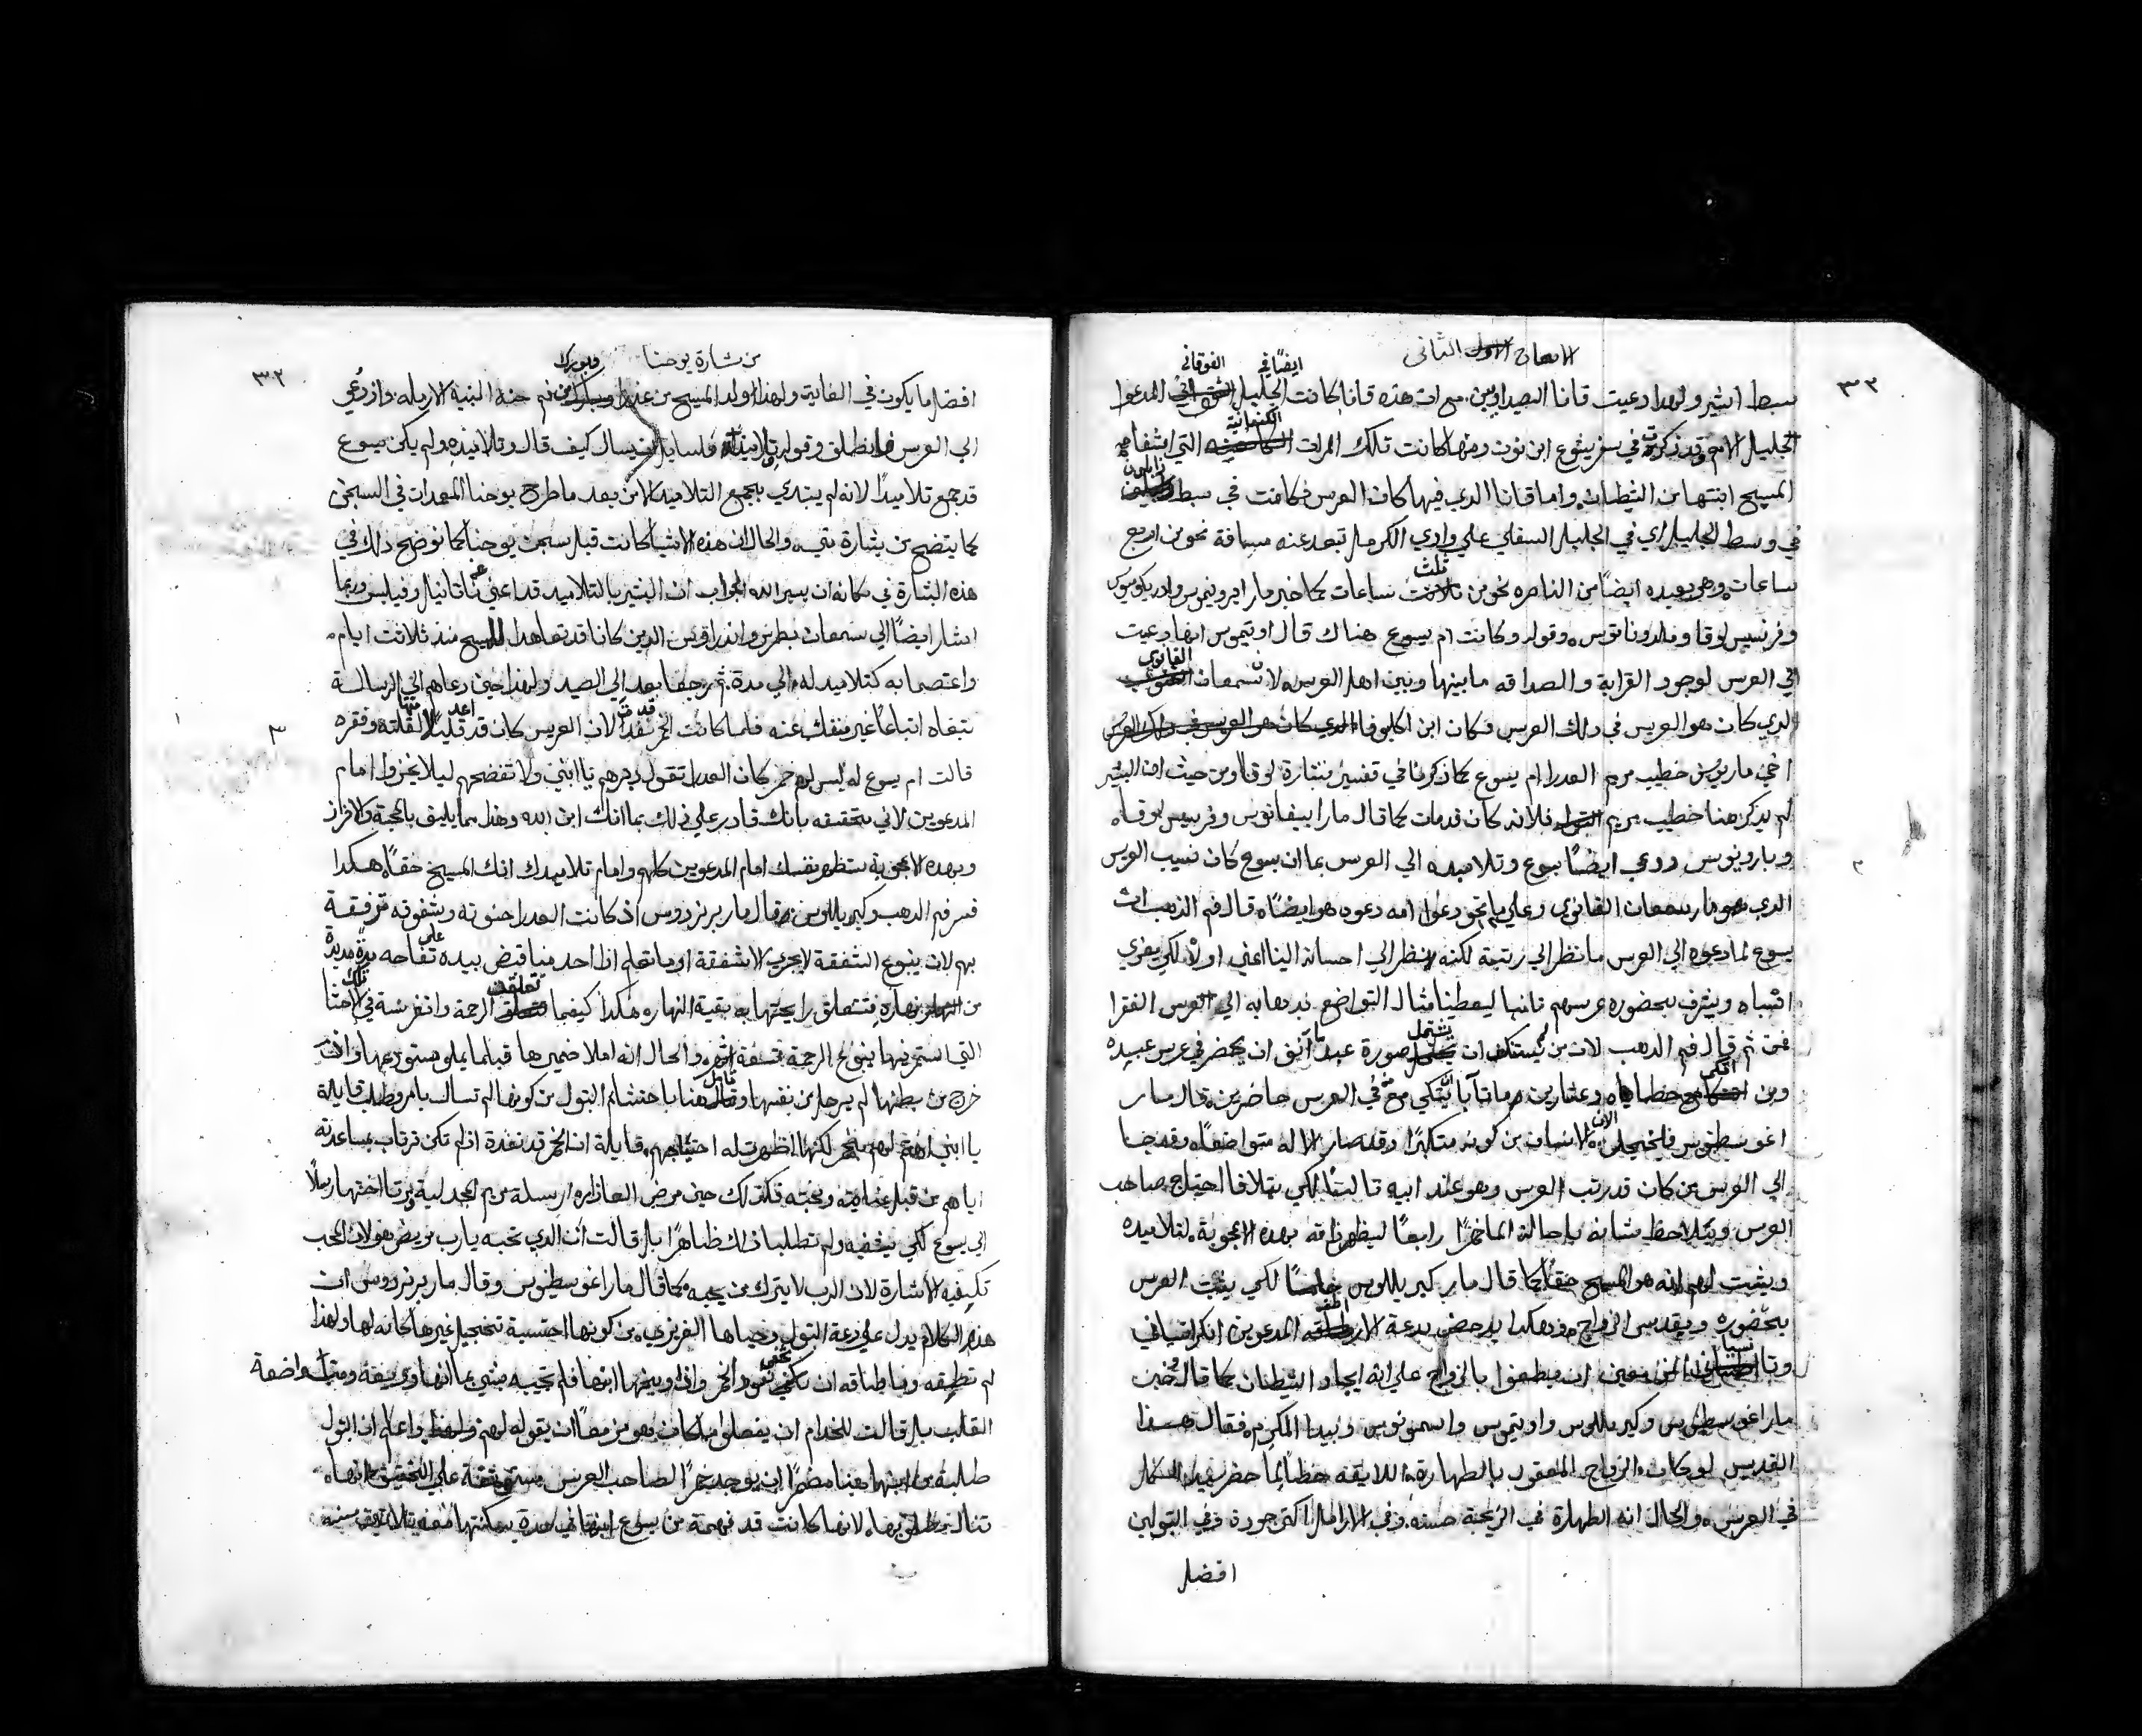 الاصحاح الثاني
٣٢
سبط اشير ولهدا دعيت قانا الصيداويين. مع ان هذه قانا كانت ايضًا في الجليل الفوقاني المدعوا
الجليل الامم وقد ذكرت في سفر يشوع ابن نون ومنها كانت تلك المراة الكنعانية التي اشفا
المسيح ابنتها من الشيطان واما قانا الدي فيها كان العرس فكانت في سبط زابلون
في وسط الجليل اي في الجليل السفلي علي وادي الكرمل تبعد عنه مسافة نحو من اربع
ساعات وهي بعيده ايضًا من الناصره نحو من ثلث ساعات كما خبر مار ايرونيموس وادريكوميوس
وفرنسيس لوقا وقوله وكانت ام يسوع هناك قال اوتيموس انها دعيت
الي العرس لوجود القرابة والصداقه مابينها وبين اهل العرس لان سمعان القانوي
الدي كان هو العريس في دلك العرس فكان ابن اكليوفا
اخي مار يوسف خطيب مريم العدرا ام يسوع كما ذكرنا في تفسير بشارة لوقا ومن حيث ان البشير
لم يدكر هنا خطيب مريم فلانه كان قد مات كما قال مار ابيفانوس وفرنسيس لوقا
وبارونيوس ودعي ايضًا يسوع وتلاميده الي العرس بما ان يسوع كان نسيب العريس
الدي هو مار سمعان القانوي وعلي ما دعوا امه دعوه هو ايضًا قال فم الدهب ان
يسوع لما دعوه الي العرس ما نظر الي رتبته لكنه نظر الي احسانه الينا اعني اولًا لكي يعزي
اقرباه ويشرف بحضوره عرسهم ثانيا ليعطينا مثال التواضع بدهابه الي العرس الفقرا
فمن ثم قال فم الدهب لان من لم يستنكف ان يشتمل صورة عبد ما آنف ان يحضر في عرس عبيده
ومن اتكي مع خطاه وعشارين ما تآبا ان يتكي مع في العرس حاضرين قال مار
اغوسطينوس فليخجل الان الانسان من كونه متكبرًا وقد صار الاله متواضعًا وقد جا
الي العرس من كان قد رتب العرس وهو عند ابيه ثالثًا لكي يتلافا احتياج صاحب
العرس ويلاحظ شانه باحالة الما خمرًا رابعًا ليظهر ذاته بهده الاعجوبة لتلاميده
ويثبت لهم انه هو المسيح حقًا كما قال مار كيريللوس خامسًا لكي يثبت العرس
بحضوره ويقدس الزواج وهكدا يدحض بدعة المدعوين انكراتياني
وتاسيانى ان يطعنوا بالزواج علي انه ايجاد الشيطان كما قال
مار اغوسطينوس وكيريللوس واوتيموس وبيدا المكرم فقال هدا
القديس لو كان الزواج المعقود بالطهارة اللايقه خطا لما حضر
في العرس والحال انه الطهارة في الزيجة حسنه وفي الارامل اكثر جودة وفي البتولين
افضل
من بشارة يوحنا
٣٣
افضل ما يكون في الغاية ولهدا ولد المسيح من عدرا ثم حنه النبيه الارمله واد دُعي
الي العرس فانطلق وقوله تلاميده فلسايل ان يسال كيف قال وتلاميده ولم يكن يسوع
قد جمع تلاميدًا لانه لم يبتدي يجمع التلاميد الا من بعد ما طرح يوحنا المعمدان في السجن
كما يتضح من بشارة متي. والحال ان هذه الاشيا كانت قبل سجن يوحنا كما نوضح دلك في
هذه البشارة في مكانه ان يسر الله الجواب ان البشير بالتلاميد قد اعني عن ناتانيال وفيلبس وربما
اشار ايضًا الي سمعان بطرس واندراوس الدين كانا قد تعاهدا للمسيح مند ثلاثة ايام
واعتصما به كتلاميد له الي مدة. ثم رجعا بعد الي الصيد ولهدا حين دعاهم الي الرسالة
تبعاه اتباعًا غير منفك عنه فلما كانت الخمر قد نفدت لان العريس كان قد اعد قليلًا لقلته وفقره
قالت ام يسوع له ليس لهم خمر كان العدرا تقول يا ابني ولا تفضحهم ليلا يخزوا امام
المدعوين لاني متحققه بانك قادر علي دلك بما انك ابن الله وهدا مما يليق بالمحبة والاقرار
وبهده الاعجوبة ستظهر نفسك امام المدعوين كلهم وامام تلاميدك انك المسيح حقًا هكدا
فسر فم الدهب وكيريللوس وقال مار برنردوس اد كانت العدرا حنونة وشفوقه ترفقت
بهم لان ينبوع الشفقة لا يجري الا شفقة اوما تعلم ادا احد منا قبض بيده علي تفاحه مدة مديدة
من نهاره فتتعلق رايحتها به بقية النهار. هكدا كيفما تعلقت الرحمة وانغرسة في تلك الاحشا
التي استمر فيها ينبوع الرحمة تسعة اشهر. والحال انه املا ضميرها قبلما يملو مستودعها والان
خرج من بطنها لم يرحل من نفسها وتامل هنا باحتشام البتول من كونها لم تسال بامر وطلب قايلة
يا ابني اعطهم خمر لكنها اظهرت له احتياجهم. قايلة ان الخمر قد نفدة اد لم تكن ترتاب بمساعدته
اياهم من قبل عنايته ومحبته فكدلك حين مرض العازار. ارسلة مريم المجدلية ومرتا اختها رسلًا
الي يسوع لكي يشفيه ولم تطلبا دلك ظاهرًا بل قالت ان الدي تحبه يارب مريض هو لان المحب
تكفيه الاشارة لان الرب لا يترك من يحبه كما قال مار اغوسطينوس وقال مار برنردوس ان
هدا الكلام يدل علي دعة البتول وحياها الغريزي من كونها احتسبة تخجيل غيرها كانه لها ولهدا
لم تطيقه وما طاقه ان تخفي نفود الخمر وادا وبخها ابنها فلم تجيبه بشي بما انها وديعه ومتواضعة
القلب بل قالت للخدام ان يفعلوا مهما كان هو مزمعًا ان يقوله لهم ولهدا واعلم ان البتول
طلبة من ابنها هنا مضمرًا ان يوجد خمرًا لصاحب العرس مستوثقة علي التحقيق انها
تنال مطلوبها. لانها كانت قد فهمة من يسوع ابنها في مدة سكنتها معه ثلاثين سنه